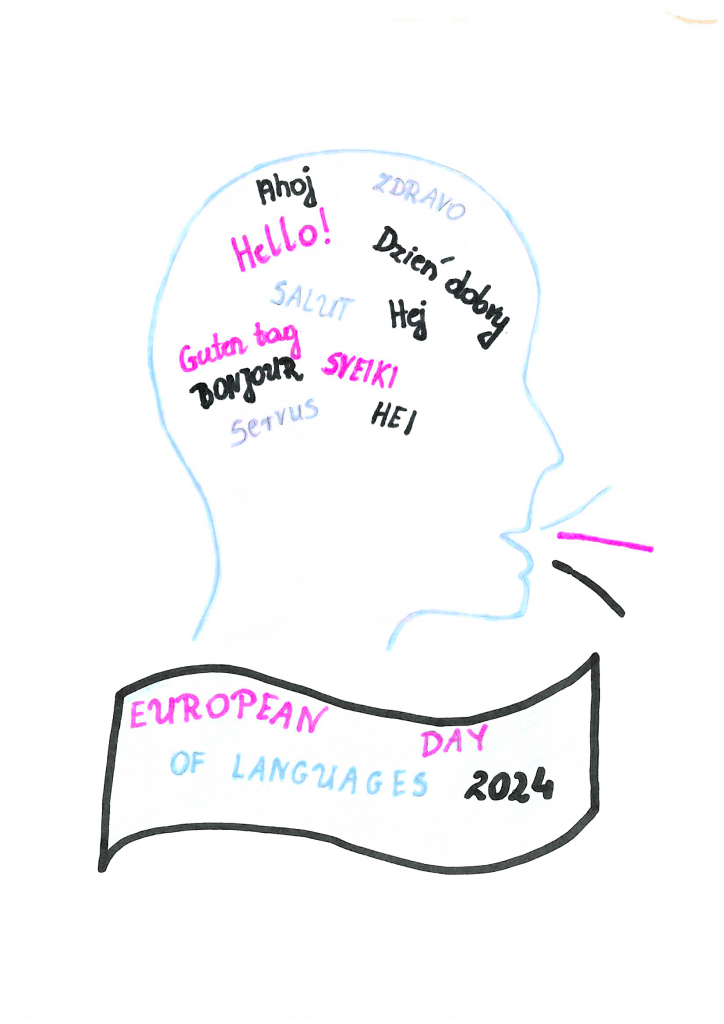 Ahoj
ZDRAVO
Hello!
Dzień dobry
SALUT
Hej
Guten tag
BONJOUR
SVEIKI
Servus
HEI
EUROPEAN DAY
OF LANGUAGES 2024